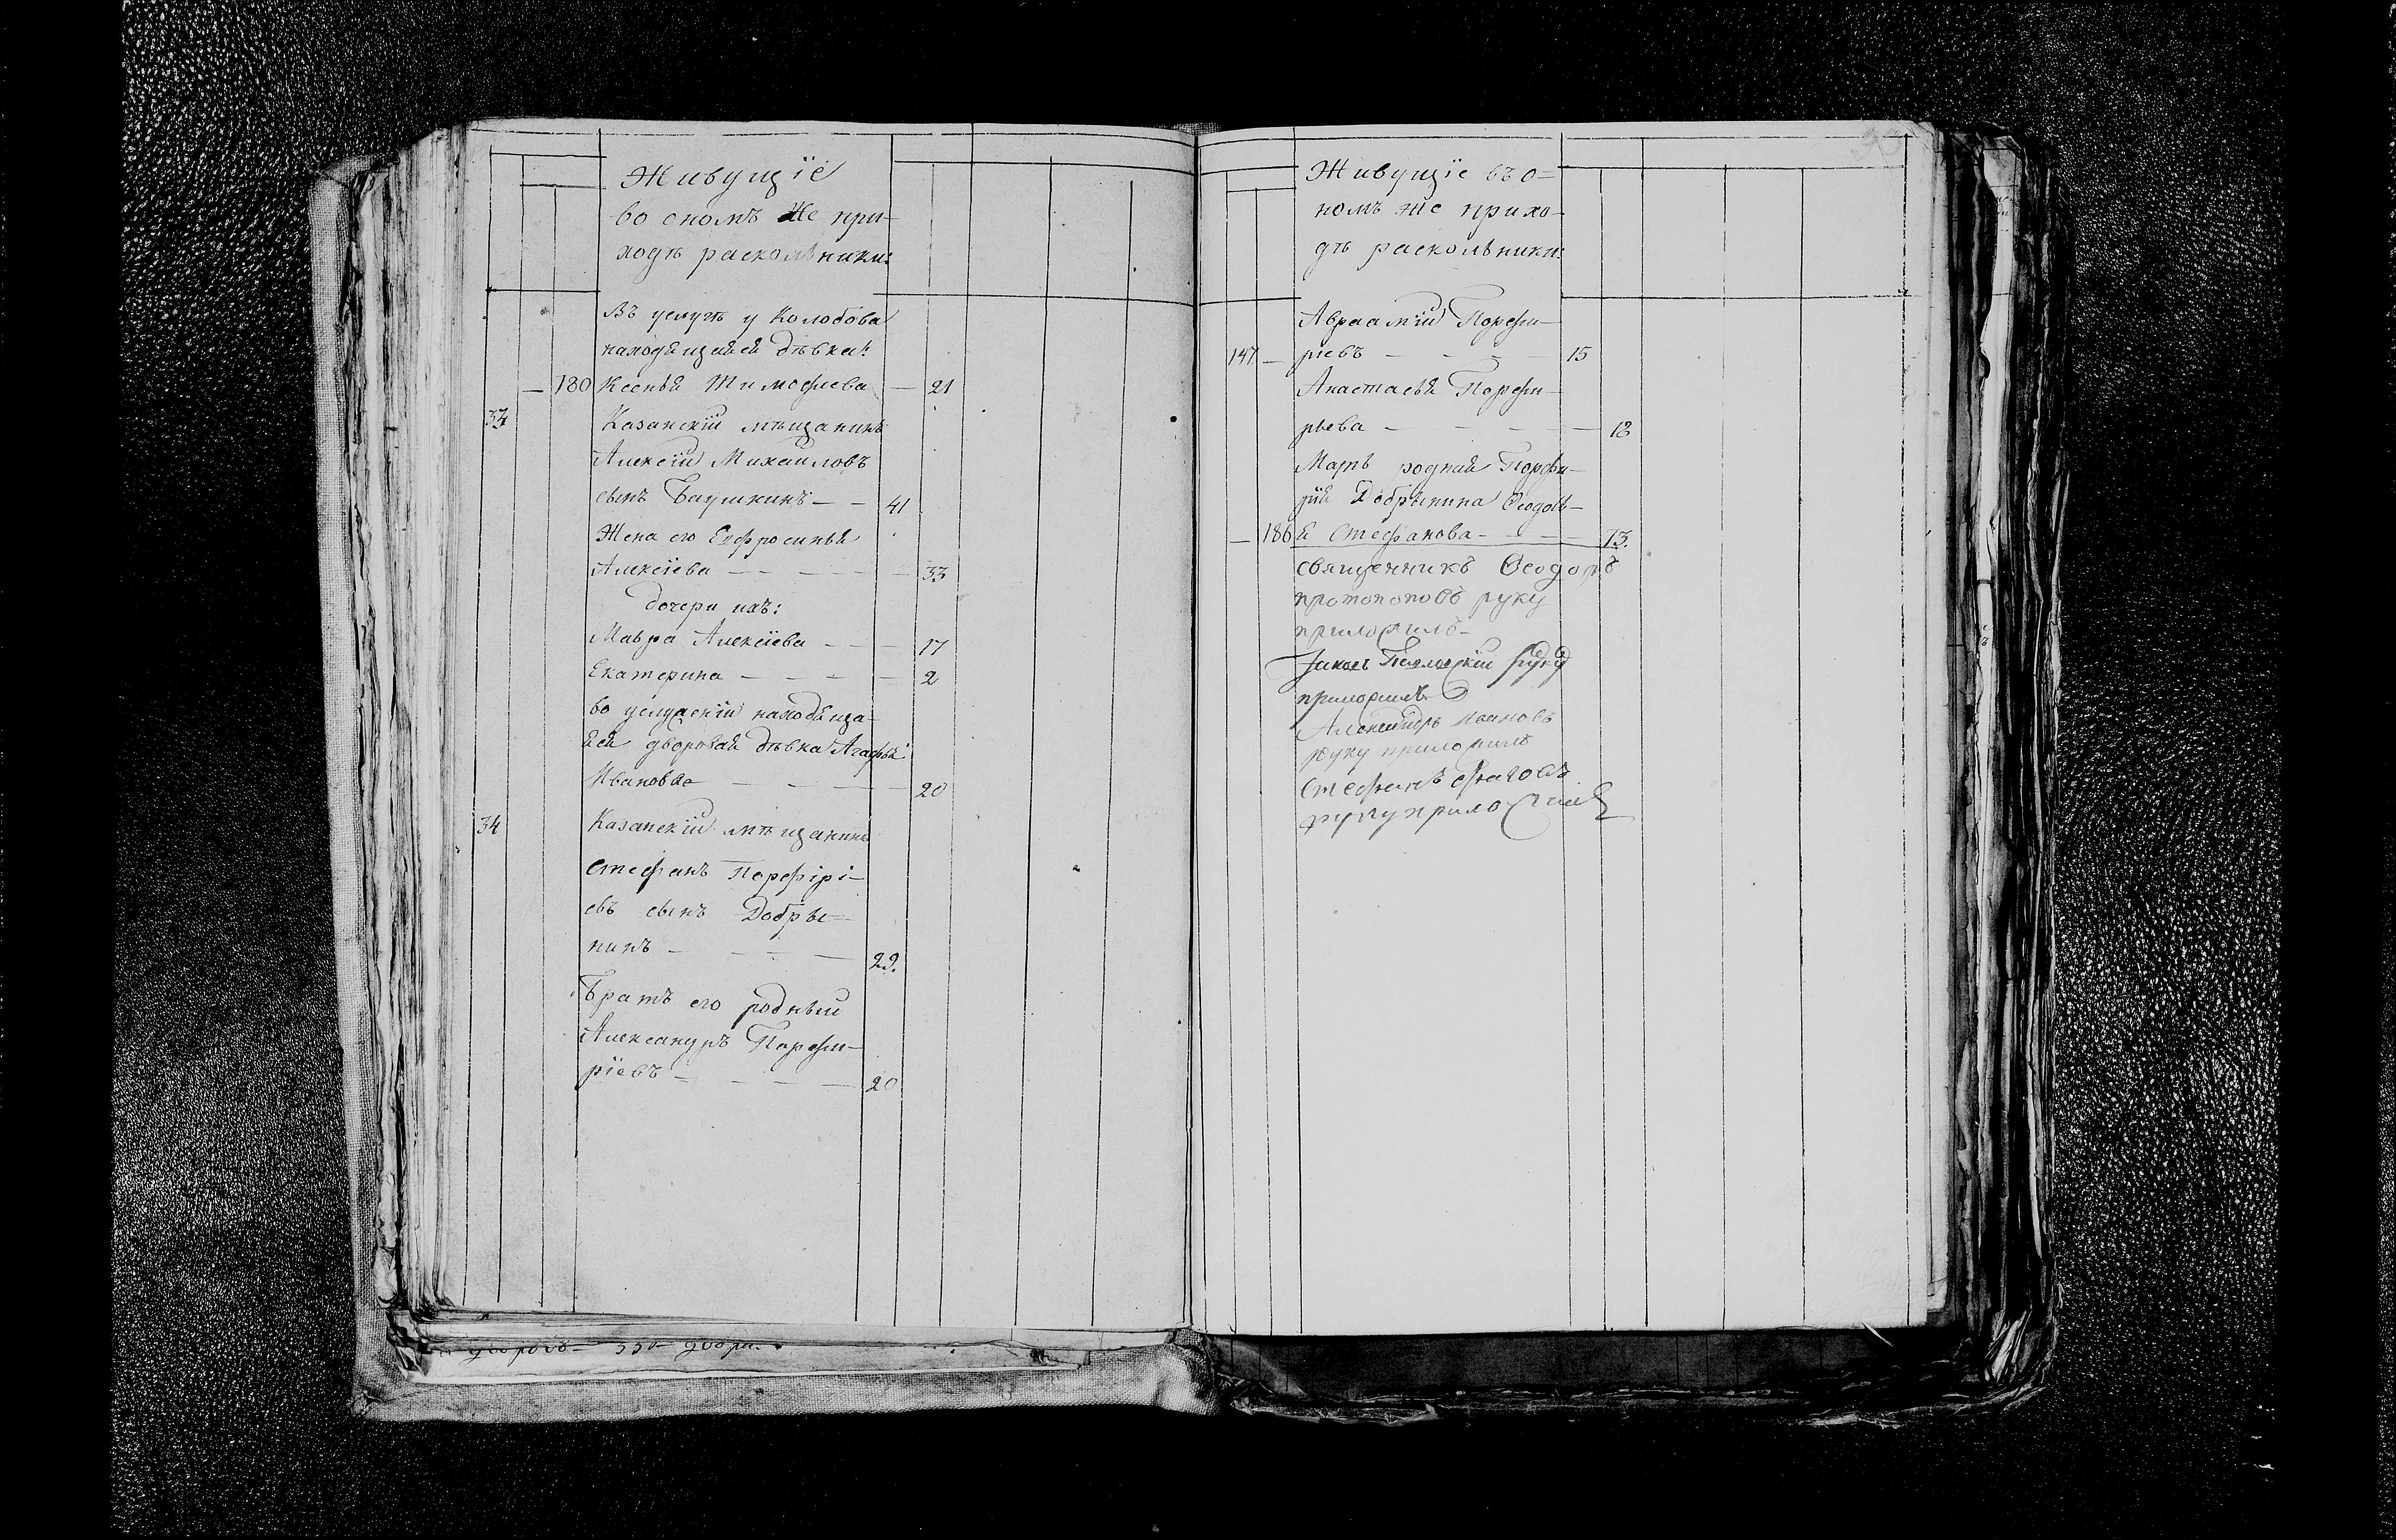 Живущіе
во ономъ же при-
ходѣ раскольники:
Въ услугѣ у Колобова
находящаяся дѣвка:
180 Ксенья Тимофеева 21
33 Казанскій мѣщанинъ
Алексій Михайловъ
сынъ Баушкинъ 41
Жена его Евфросинья
Алексіева 33
дочери ихъ:
Мавра Алексіева 17
Екатерина 2
во услуженіи находяща-
яся дворовая дѣвка Агафья
Иванова 20
34 Казанскій мѣщанинъ
Стефанъ Порфирі-
евъ сынъ Добры-
нинъ 29.
Братъ его родный
Александръ Порфи-
ріевъ 20
дворовъ
Живущіе въ о-
номъ же прихо-
дѣ раскольники:
Авраамій Порфи-
147 ріевъ 15
Анастасья Порфи-
рьева 18
Мать родная Порфи-
рія Добрынина Ѳеодось-
186 я Стефанова 73.
священникъ Ѳеодоръ
протопоповъ руку
приложилъ
руку
приложилъ
Александръ Ивановъ
руку приложилъ
Стефанъ
руку приложилъ